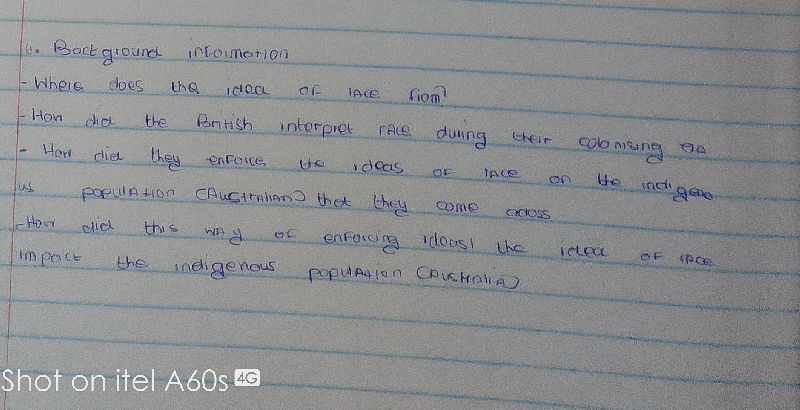 1. Background information
- Where does the idea of race from?
- How did the British interpret race during their colonising era
- How did they enforce the ideas of race on the indigeno
us population (Australian) that they come across
- How did this way of enforcing ideas/ the idea of race
impact the indigenous population (Australia)
Shot on itel A60s 4G